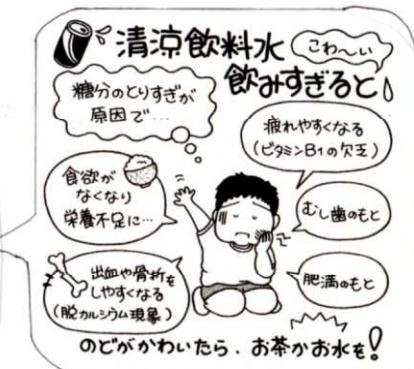 清涼飲料水
こわ～い
飲みすぎると
糖分のとりすぎが
原因で…
疲れやすくなる
(ビタミンB1の欠乏)
食欲が
なくなり
栄養不足に…
むし歯のもと
出血や骨折を
しやすくなる
(脱カルシウム現象)
肥満のもと
のどがかわいたら、お茶かお水を!